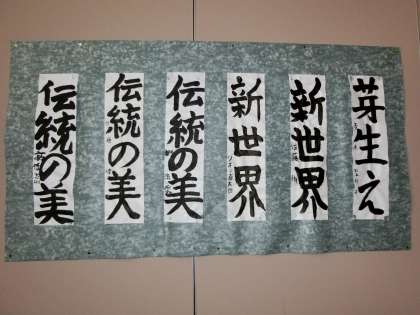 芽生え
新世界
新世界
伝統の美
伝統の美
伝統の美